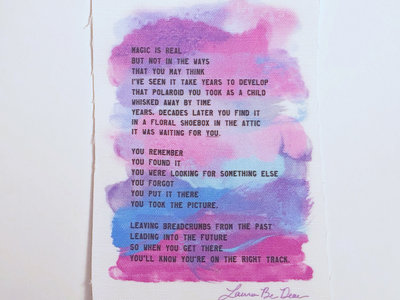 MAGIC IS REAL
BUT NOT IN THE WAYS
THAT YOU MAY THINK
I'VE SEEN IT TAKE YEARS TO DEVELOP
THAT POLAROID YOU TOOK AS A CHILD
WHISKED AWAY BY TIME
YEARS, DECADES LATER YOU FIND IT
IN A FLORAL SHOEBOX IN THE ATTIC
IT WAS WAITING FOR YOU.
YOU REMEMBER
YOU FOUND IT
YOU WERE LOOKING FOR SOMETHING ELSE
YOU FORGOT
YOU PUT IT THERE
YOU TOOK THE PICTURE.
LEAVING BREADCRUMBS FROM THE PAST
LEADING INTO THE FUTURE
SO WHEN YOU GET THERE
YOU'LL KNOW YOU'RE ON THE RIGHT TRACK.